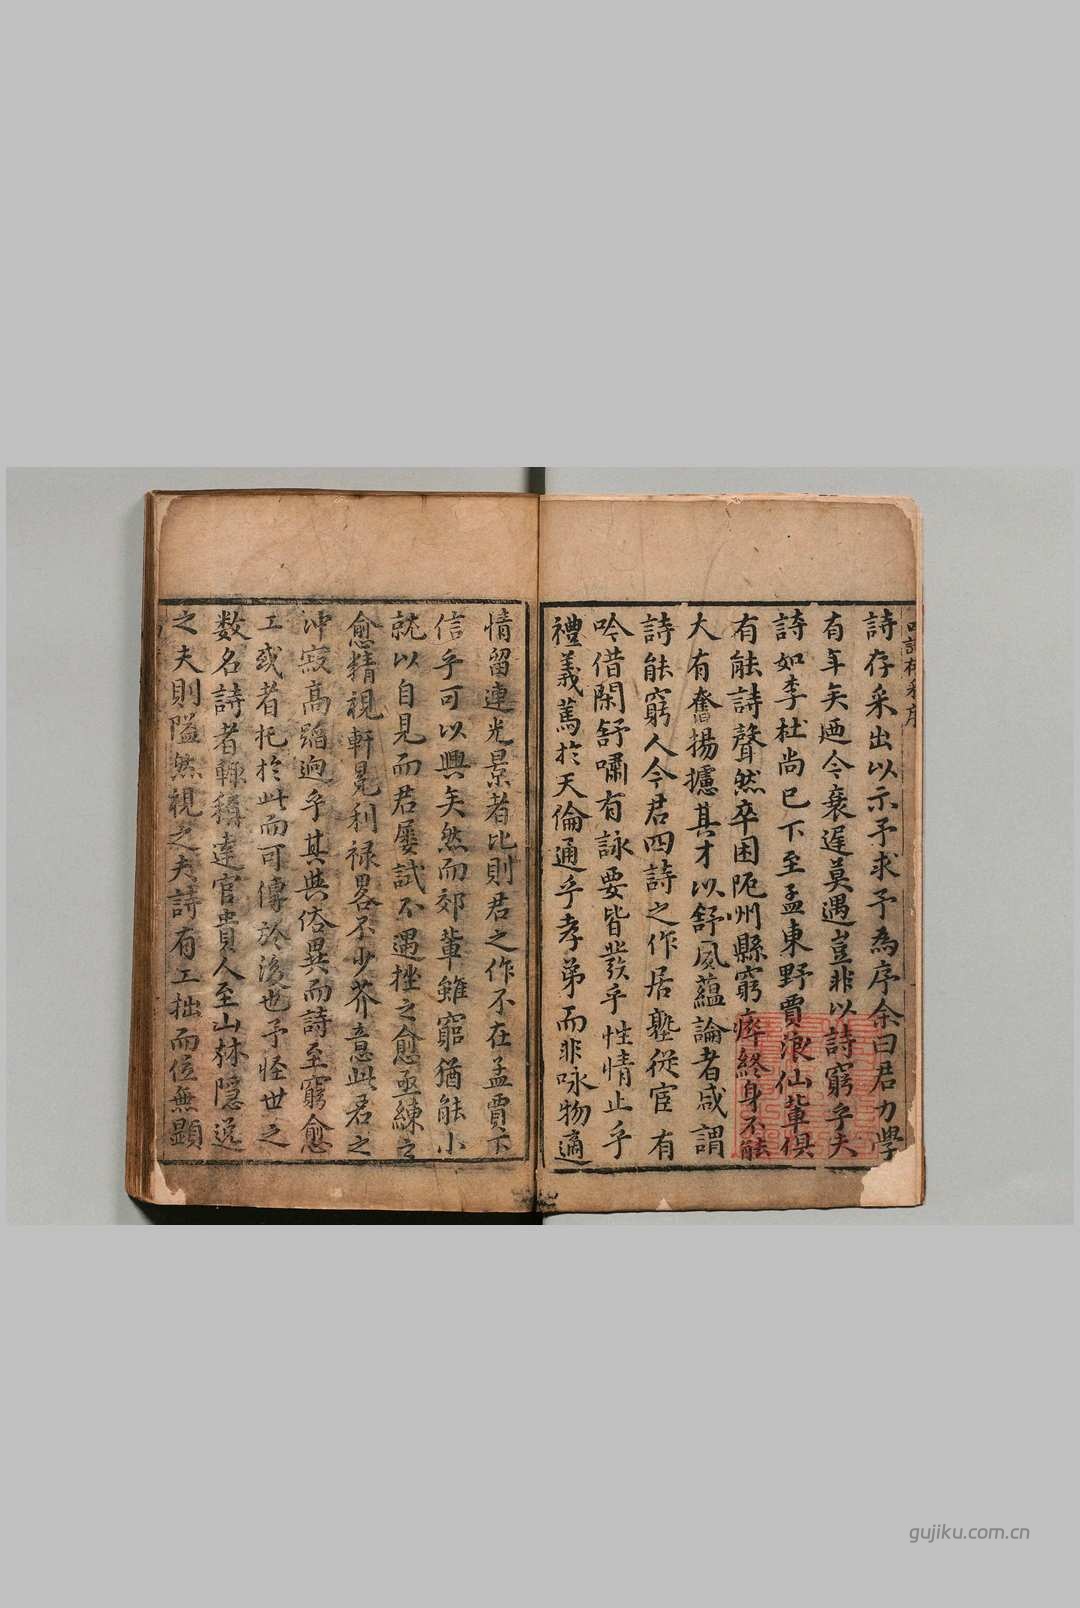 詩存采序
詩存采出以示予求予為序余曰君力學
有年矣廼今衰遲莫遇豈非以詩窮乎夫
詩如李杜尚已下至孟東野賈浪仙軰俱
有能詩聲然卒困阨州縣窮瘁終身不能
大有奮揚攄其才以舒風蘊論者咸謂
詩能窮人今君四詩之作居塾從宦有
吟借閑舒嘯有詠要皆發乎性情止乎
禮義篤於天倫通乎孝弟而非咏物適
情留連光景者比則君之作不在孟賈下
信乎可以興矣然而郊軰雖窮猶能小
就以自見而君屢試不遇挫之愈亟練之
愈精視軒冕利禄畧不少芥意此君之
冲寂高蹈逈乎其與俗異而詩至窮愈
工或者托於此而可傳於後也予怪世之
数名詩者輙稱達官貴人至山林隱逸
之夫則隘然視之夫詩有工拙而位無顯
gujiku.com.cn